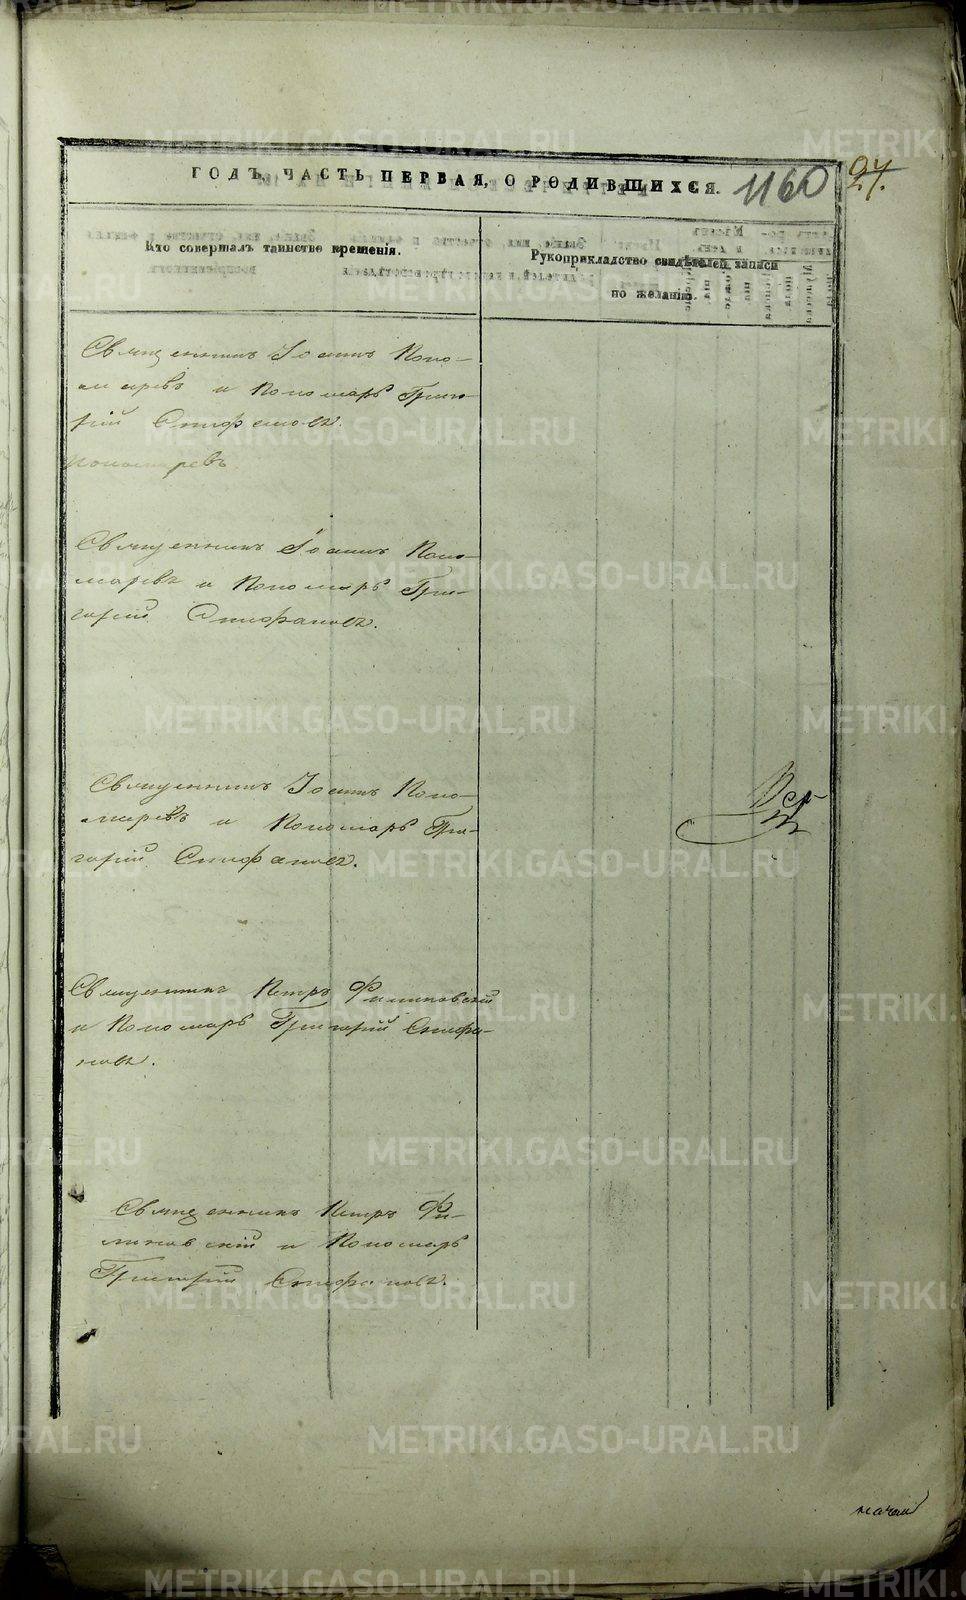 ГОДЪ, ЧАСТЬ ПЕРВАЯ, О РОДИВШИХСЯ.
1160
27.
Кто совершалъ таинство крещенія.
Рукоприкладство свидѣтелей записи
по желанію.
Священникъ Іоаннъ Поно-
маревъ и Пономарь Григо-
рій
Пономаревъ
Священникъ Іоаннъ Поно-
маревъ и Пономарь Гри-
горій Стефановъ.
Священникъ Іоаннъ Поно-
маревъ и Пономарь Гри-
горій Стефановъ.
Священникъ Петръ Филиповскій
и Пономарь Григорій Стефа-
новъ.
Священникъ Петръ Фи-
липовскій и Пономарь
Григорій Стефановъ.
METRIKI.GASO-URAL.RU